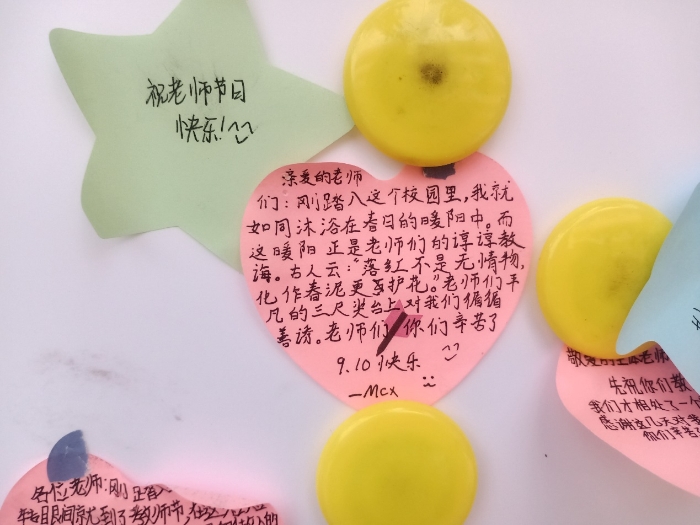 祝老师节日
快乐!^^
亲爱的老师
们:刚踏入这个校园里,我就
如同沐浴在春日的暖阳中。而
这暖阳正是老师们的谆谆教
海。古人云:“落红不是无情物,
化作春泥更护花。”老师们平
凡的三尺尖台上对我们循循
善诱。老师们 你们辛苦了
9.10快乐
—Mcx
敬爱的 老师
先祝你们教
我们才相处了一个
感谢这几天对
你们辛苦
各位老师:刚踏入
眼间就到了教师节,在这